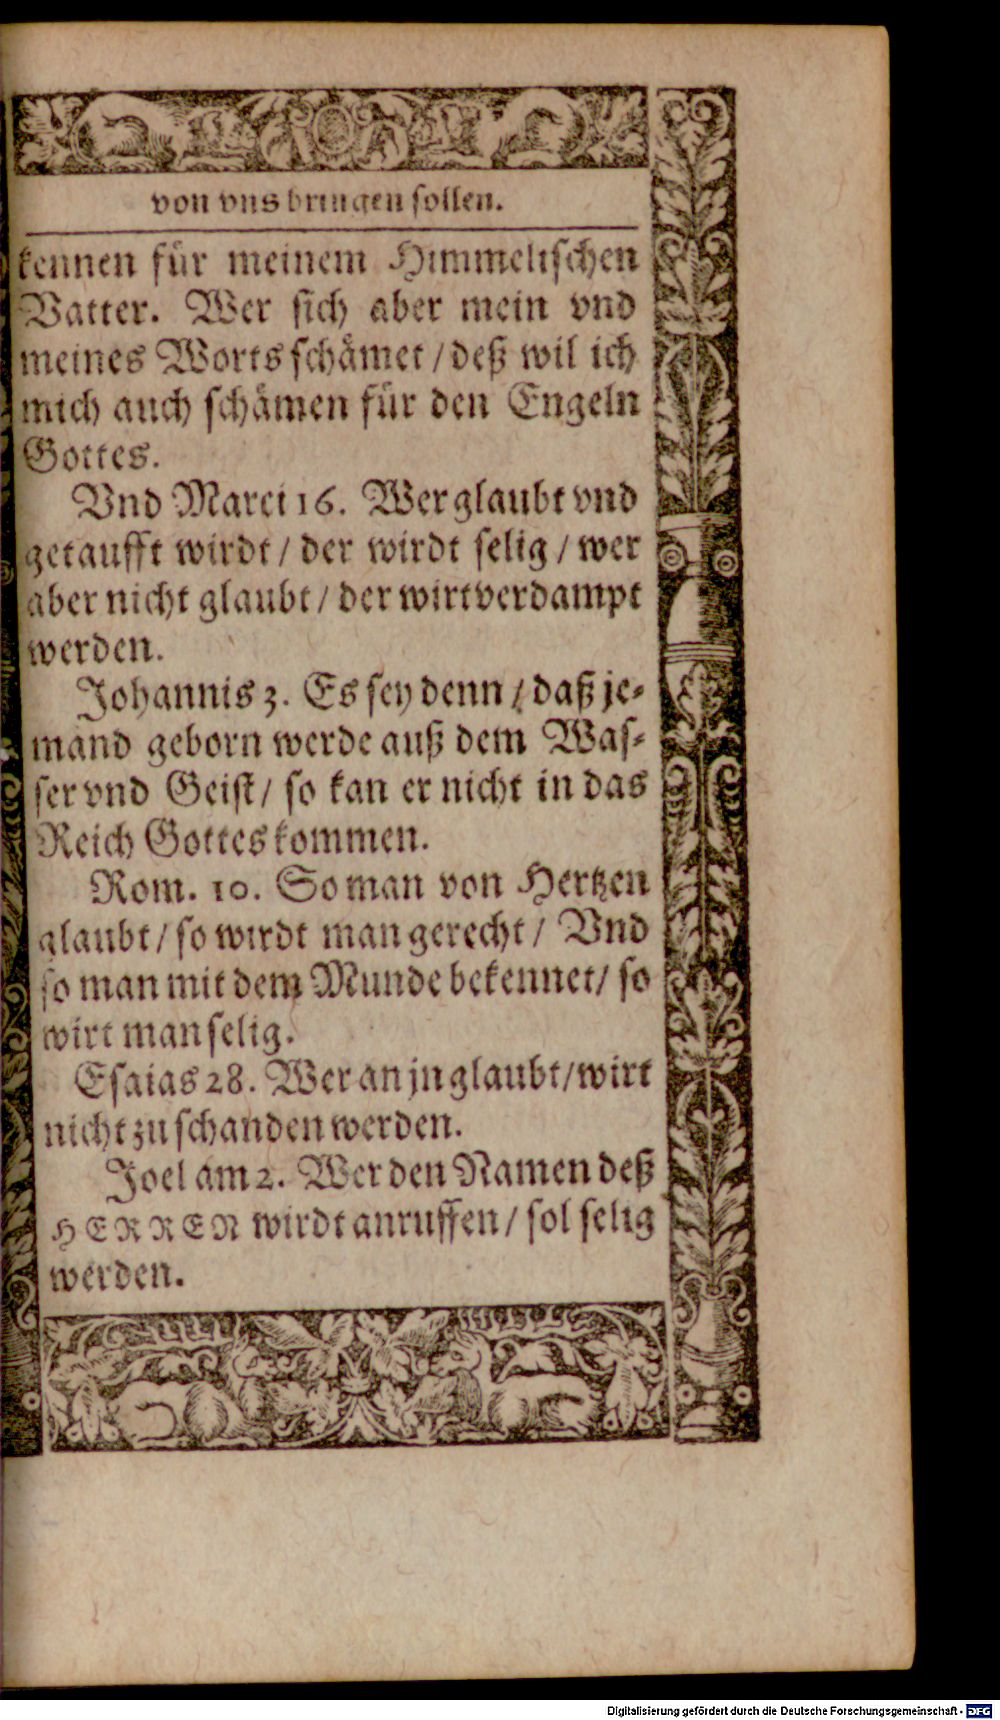 von vns bringen sollen.
kennen für meinem Himmelischen
Vatter. Wer sich aber mein vnd
meines Worts schämet / deß wil ich
mich auch schämen für den Engeln
Gottes.
Vnd Marci 16. Wer glaubt vnd
getaufft wirdt / der wirdt selig / wer
aber nicht glaubt / der wirt verdampt
werden.
Johannis 3. Es sey denn / daß je-
mand geborn werde auß dem Was-
ser vnd Geist / so kan er nicht in das
Reich Gottes kommen.
Rom. 10. So man von Hertzen
glaubt / so wirdt man gerecht / Vnd
so man mit dem Munde bekennet / so
wirt man selig.
Esaias 28. Wer an jn glaubt / wirt
nicht zu schanden werden.
Joel am 2. Wer den Namen deß
HERREN wirdt anruffen / sol selig
werden.
Digitalisierung gefördert durch die Deutsche Forschungsgemeinschaft - DFG